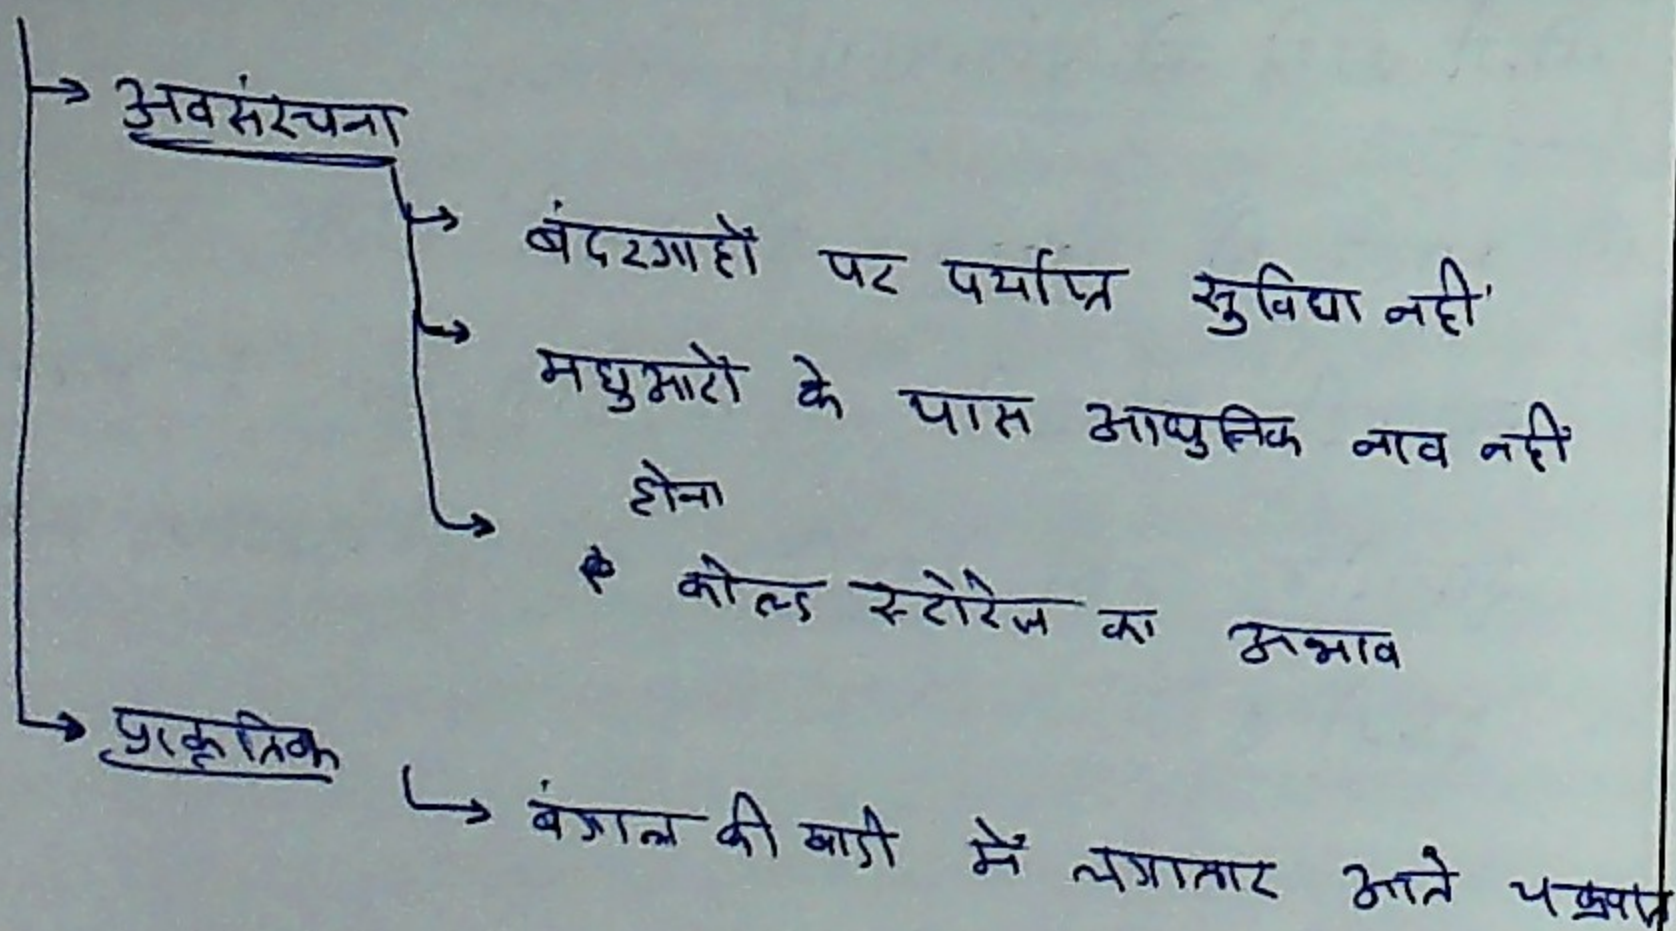 अवसंरचना
बंदरगाहों पर पर्याप्त सुविधा नहीं
मछुआरों के पास आधुनिक नाव नहीं
होना
कोल्ड स्टोरेज का अभाव
प्राकृतिक
बंगाल की खाड़ी में लगातार आते चक्रवात